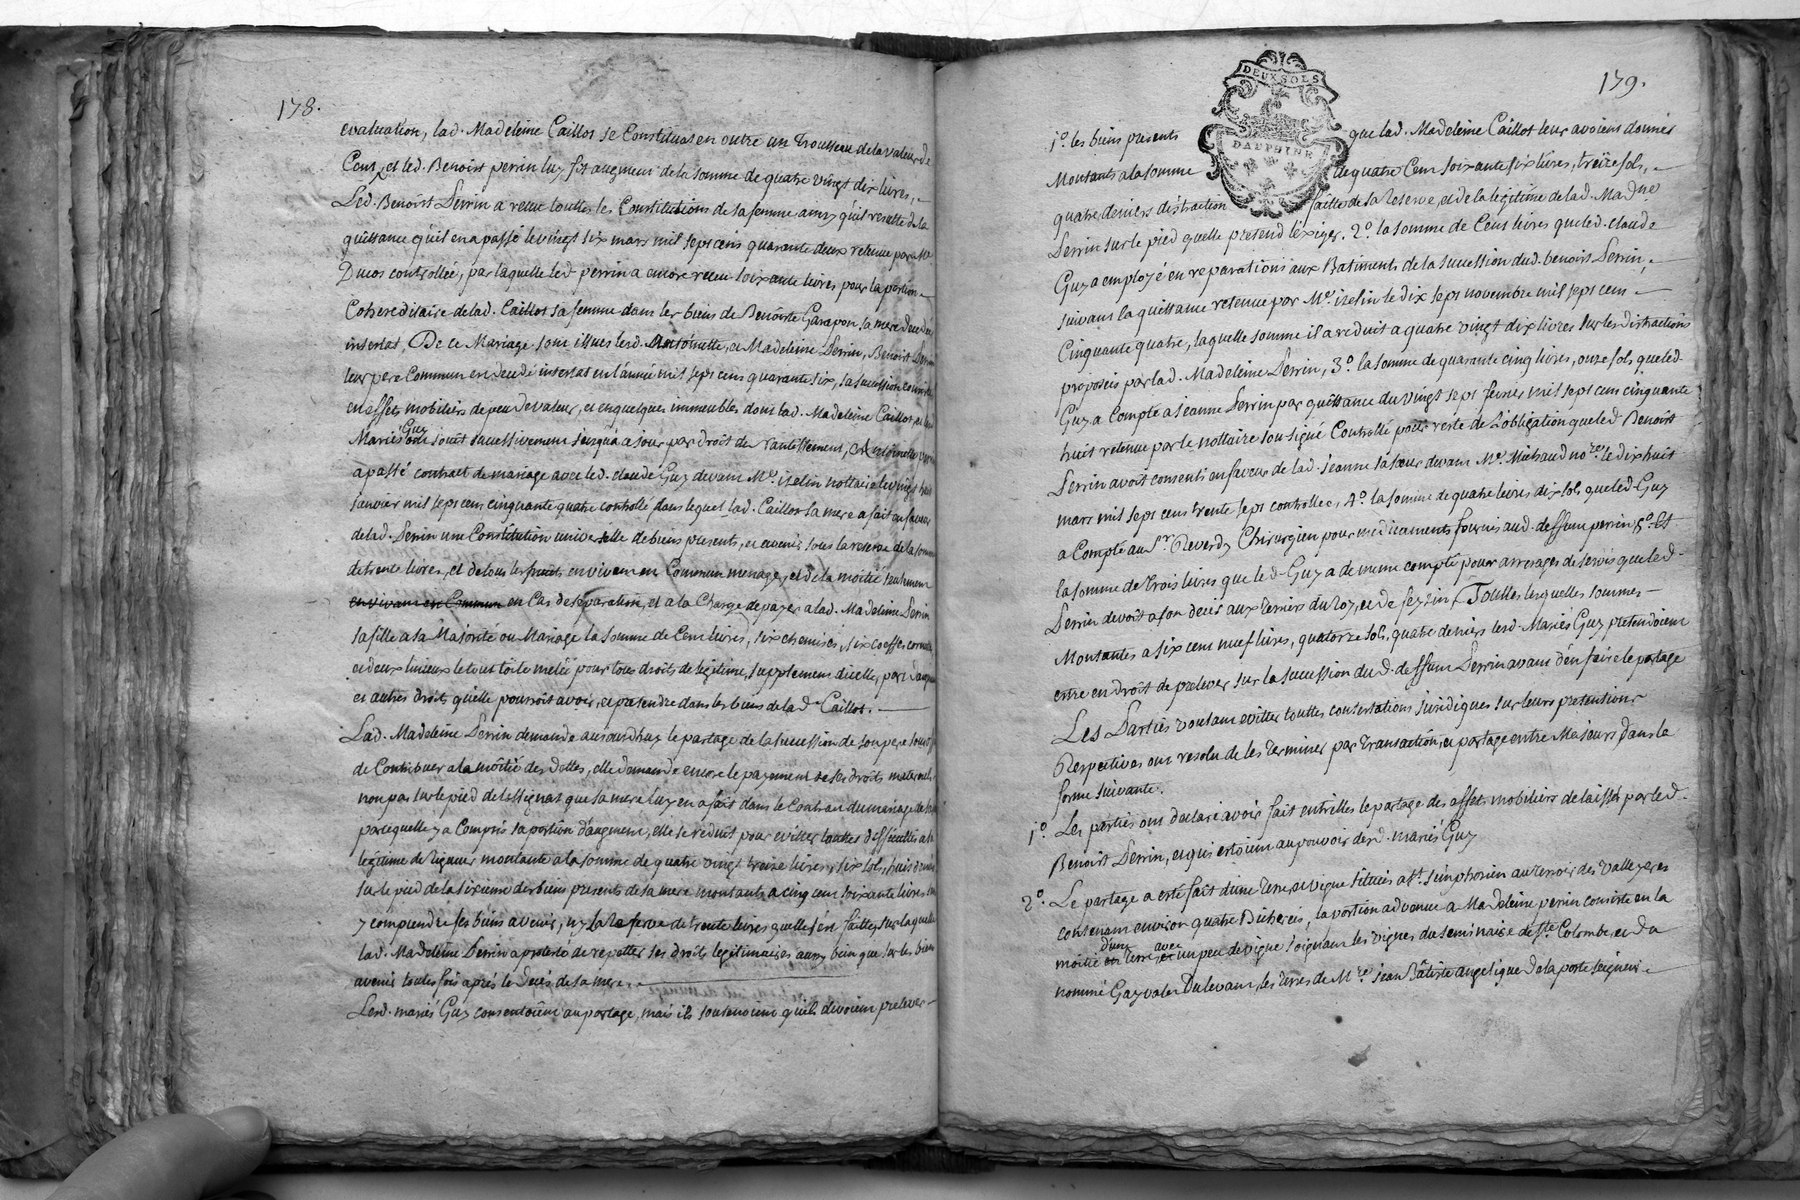 178.
evaluation, lad. Madeleine Caillot se Constituat en outre un Trousseau de la valeur de
Cent, et led. Benoist perrin luy fit augment de la somme de quatre vingt dix livres, -
Led. Benoist Perrin a recue touttes les Constitutions de sa femme ainsy qu'il resulte de la
quittance qu'il en a passé le vingt six mars mil sept cens quarante deux retenue par Me.
Ducos controllée, par laquelle led. perrin a encore receu soixante livres pour la portion -
Cohereditaire de lad. Caillot sa femme dans les biens de Benoiste Garapon sa mere decedée
intestat, De ce Mariage sont issues lesd. Antoinette, et Madeleine Perrin, Benoist Perrin
leur pere Commun en decedé intestat en l'année mil sept cens quarante six, sa succession consiste
en effets mobiliers de peu de valeur, et en quelques immeubles dont lad. Madeleine Caillot, et les
Mariés Guy ont jouit successivement jusqu'a a jour par droit de nantissement, Antoinette perrin
a passé contract de mariage avec led. claude Guy devant Me. izelin nottaire le vingt huit
janvier mil sept cens cinquante quatre controllé dans lequel lad. Caillot la mere a fait en faveur
de lad. Perrin une Constitution universelle de biens presents, et avenir sous la reserve de la somme
de trente livres, et de tous les fruits en vivant en Commun menage, et de la moitié seulement
en vivant en Commun en Cas de separation, et a la Charge de payer a lad. Madeleine Perrin
sa fille a sa Majorité ou Mariage la somme de Cent livres, six chemises, six coeffes
et deux linieux le tout toile melée pour tous droits de legitime, supplement dicelle, part d'augment
et autres droits qu'elle pourroit avoir, et pretendre dans les biens de lad. Caillot. -
Lad. Madeleine Perrin demande aujourdhuy le partage de la succession de son pere
de Contribuer a la moitié des dettes, elle demande encore le payement de ses droits maternels
non pas sur le pied de l'assignat que sa mere luy en a fait dans le Contrat du mariage
parcequelle y a Compris sa portion d'augment, elle se reduit pour eviter touttes difficultés a la
legitime de rigueur montante a la somme de quatre vingt treize livres, six sols, huit deniers
sur le pied de la sixieme des biens presents de sa mere montants a cinq cent soixante livres
y comprendre ses biens avenir, ny la reserve de trente livres quelle s'en faitte, sur laquelle
lad. Madeleine Perrin a protesté de repetter ses droits legitimaires aussy bien que sur les biens
avenir toutes fois aprés le Decés de sa mere. -
Lesd. mariés Guy consentoient au partage, mais ils soutenoient qu'ils devoient prelever -
179.
DEUX SOLS
DAUPHINE
1o. les biens presents que lad. Madeleine Caillot leur avoient donnés
Montants a la somme de quatre Cent soixante six livres, treize sols, -
quatre deniers distraction faitte de la Reserve, et de la legitime de lad. Madne
Perrin sur le pied quelle pretend l'exiger. 2o. la somme de Cent livres que led. claude
Guy a employé en reparations aux Batiments de la succession dud. benoist Perrin, -
suivant la quittance retenue par Me. izelin le dix sept novembre mil sept cent -
Cinquante quatre, laquelle somme il a reduit a quatre vingt dix livres sur les distractions
proposeés par lad. Madeleine Perrin, 3o. la somme de quarante cinq livres, onze sols que led.
Guy a Compté a jeanne Perrin par quittance du vingt sept fevrier mil sept cent cinquante
huit retenue par le nottaire soussigné Controllé pour reste de l'obligation que led. Benoist
Perrin avoit consenti en faveur de lad. jeanne sa soeur devant Me. Michaud nore. le dix huit
mars mil sept cens trente sept controllée, 4o. la somme de quatre livres dix sols que led. Guy
a Compté au Sr. Reverdy Chirurgien pour medicaments fournis aud. deffunt perrin 5o. Et
la somme de trois livres que led. Guy a de meme compté pour arrerages de servis que led.
Perrin devoit a son decés aux terriers du roy, et de feyzin, Touttes lesquelles sommes -
Montantes a six cent neuf livres, quatorze sols, quatre deniers lesd. Mariés Guy pretendoient
etre en droit de prelever sur la succession dud. deffunt Perrin avant d'en faire le partage
Les Parties voulant evitter touttes contestations juridiques sur leurs pretentions
Respectives ont resolu de les terminer par transaction, et partage entre Majeurs dans la
forme suivante.
1o. Les parties ont declaré avoir fait entr'elles le partage des effets mobiliers delaissés par led.
Benoist Perrin, et qui estoient au pouvoir desd. mariés Guy
2o. Le partage a esté fait d'une terre et vigne situées a St. simphorien au terroir des Valleyeres
contenant environ quatre Bicherées, la portion advenue a Madeleine perrin consiste en la
moitié d'une terre, avec un peu de vigne joignant les vignes du seminaire de Ste. Colombe, et du
nommé Gayvalet du levant, les terres de Mre. jean Bâtiste angelique de la porte seigneur -